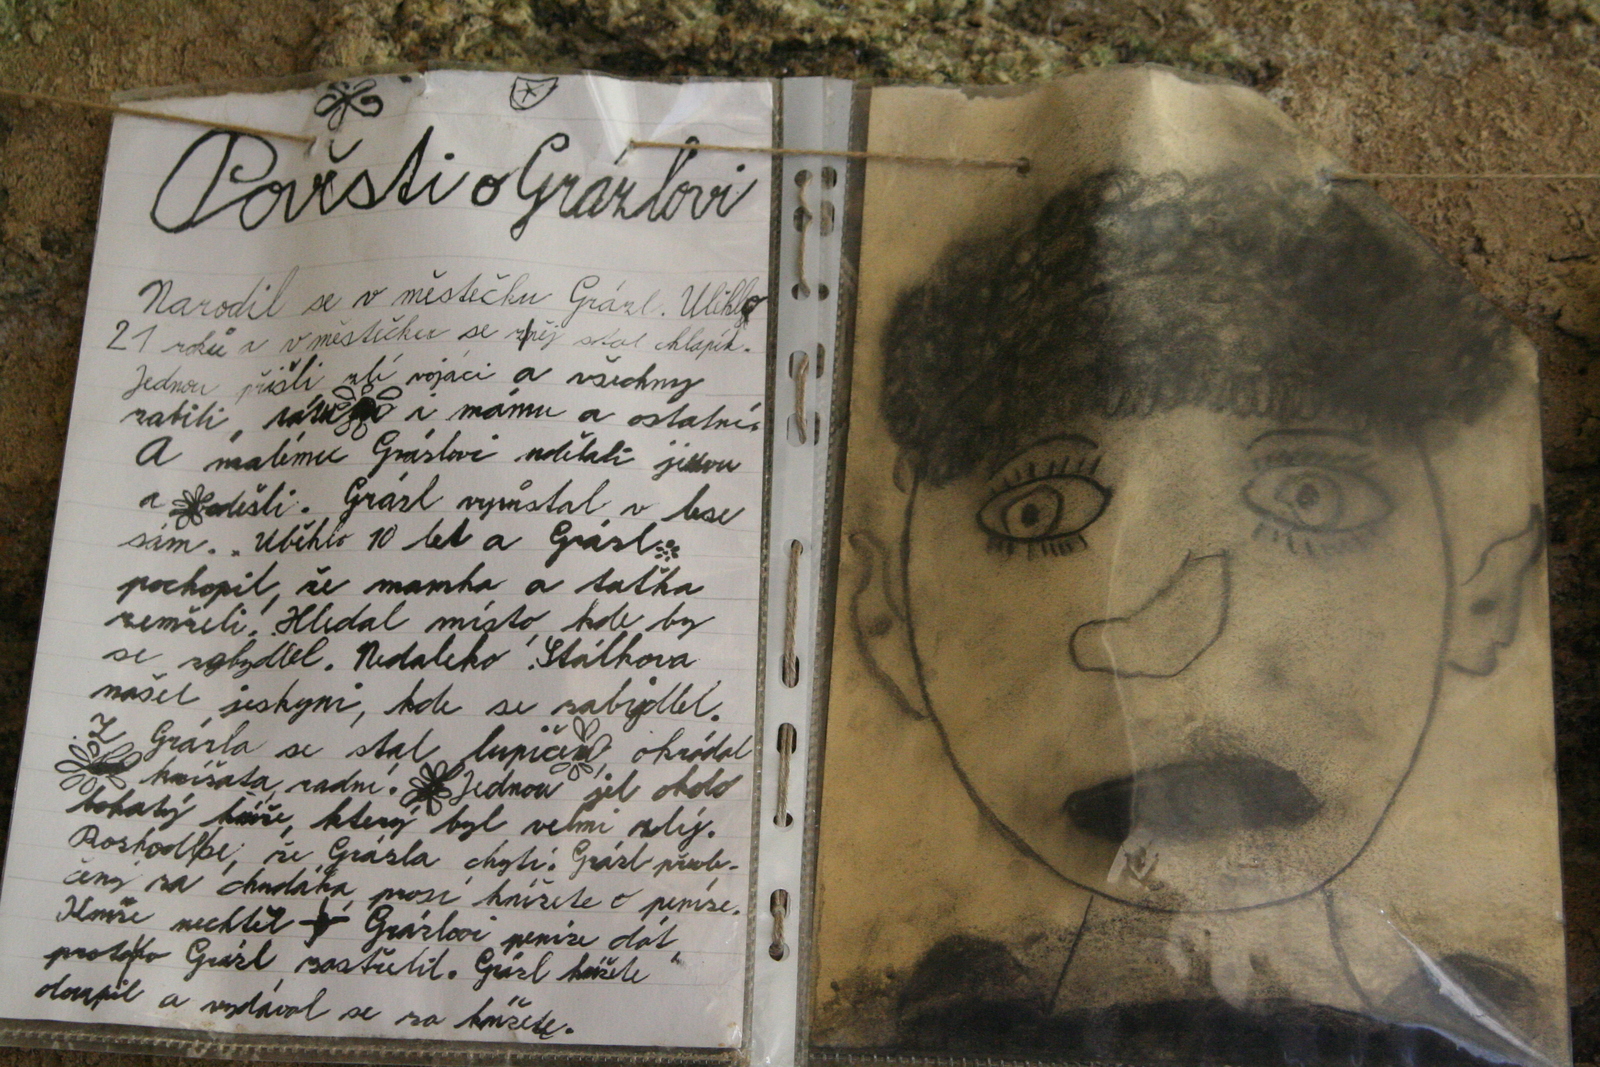 Pověsti o Grázlovi
Narodil se v městěčku Grázl. Uběhlo
21 roků a v městěčku se z něj stal chlapík.
Jednou přišli zlí vojáci a všechny
zabili, tátu i mámu a ostatní.
A malému Grázlovi udělali jizvu
a odešli. Grázl vyrůstal v lese
sám. Uběhlo 10 let a Grázl
pochopil, že mamka a taťka
zemřeli. Hledal místo, kde by
se zabydlel. Nedaleko Stálkova
našel jeskyni, kde se zabydlel.
Z Grázla se stal lupičem, okrádal
knížata, radní. Jednou jel okolo
bohatý kníže, který byl velmi zlý.
Rozhodl se, že Grázla chytí. Grázl převle-
čený za chudáka prosí knížete o peníze.
Kníže nechtěl Grázlovi peníze dát,
proto ho Grázl zastřelil. Grázl knížete
oloupil a vydával se za knížete.